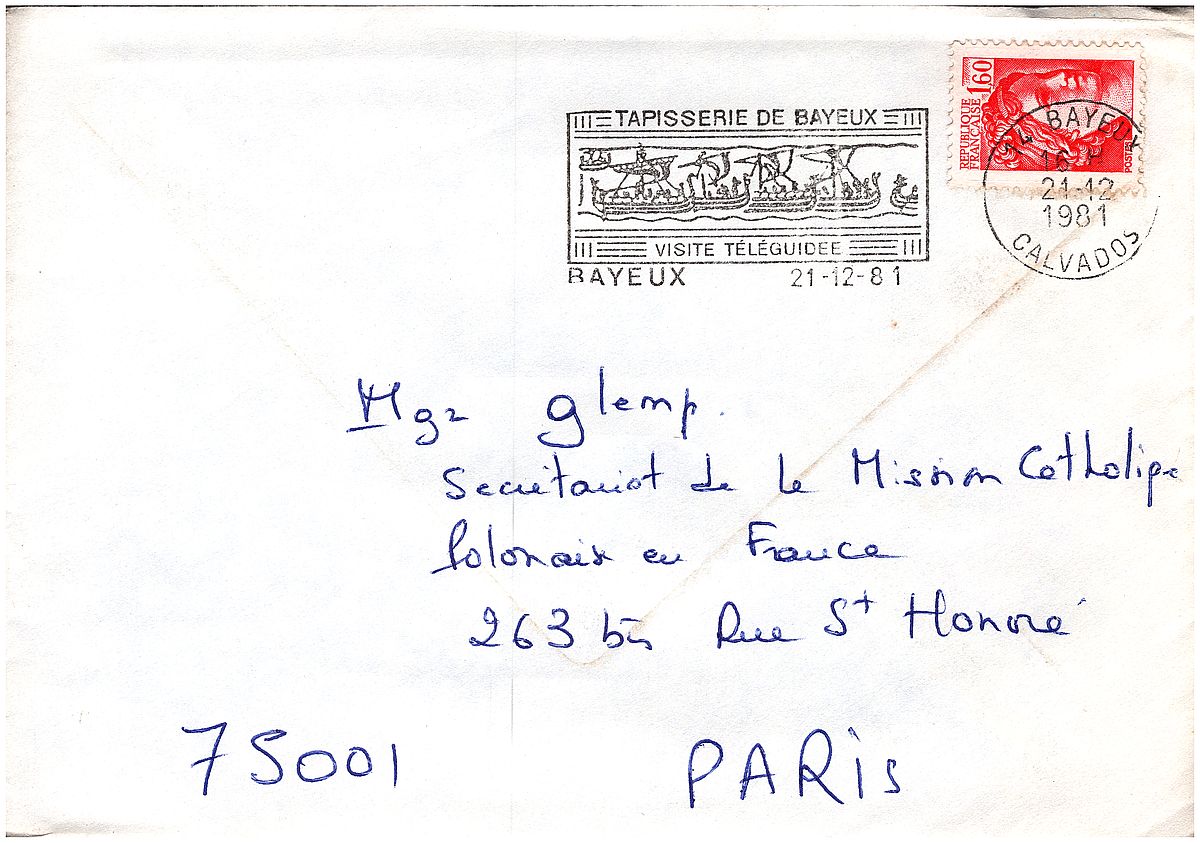 TAPISSERIE DE BAYEUX
VISITE TÉLÉGUIDEE
BAYEUX 21-12-81
REPUBLIQUE
FRANÇAISE 1,60
POSTES
14 BAYEUX
16 H
21-12
1981
CALVADOS
Mgr glemp.
Secrétariat de la Mission Catholique
Polonaise en France
263 bis Rue St Honoré
75001 PARIS